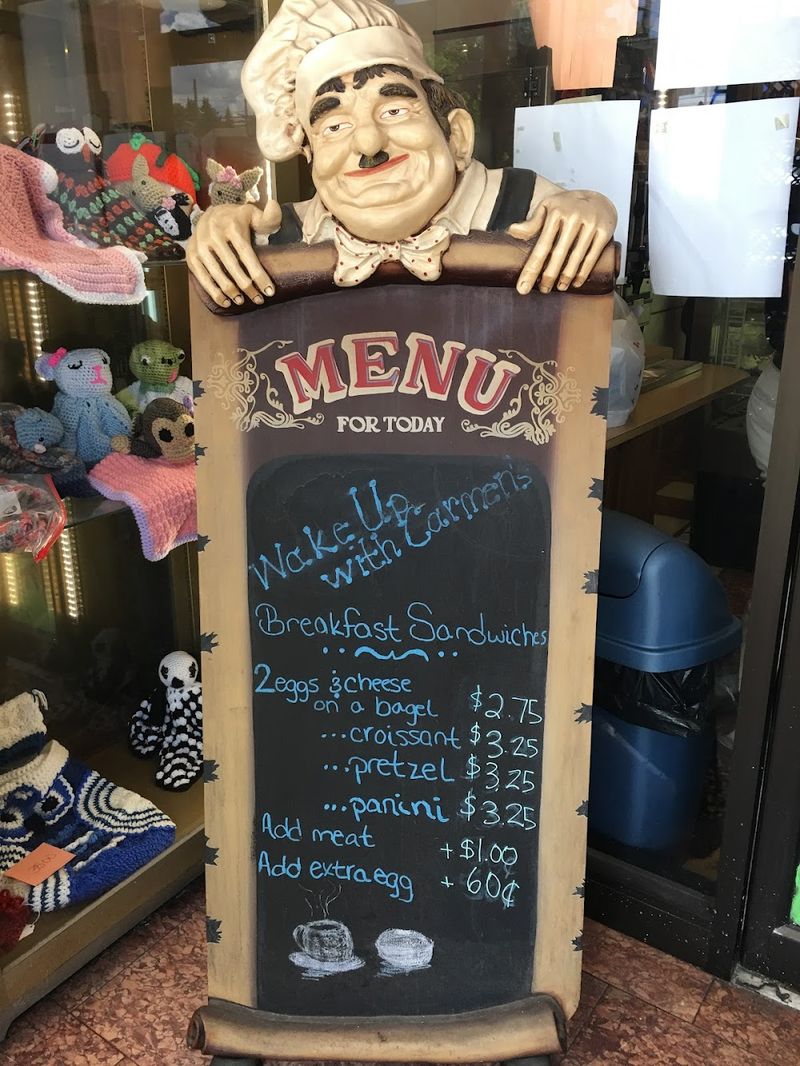 MENU
FOR TODAY
Wake Up
with Carmen's
Breakfast Sandwiches
2 eggs & cheese
on a bagel $2.75
...croissant $3.25
...pretzel $3.25
...panini $3.25
Add meat + $1.00
Add extra egg + 60¢